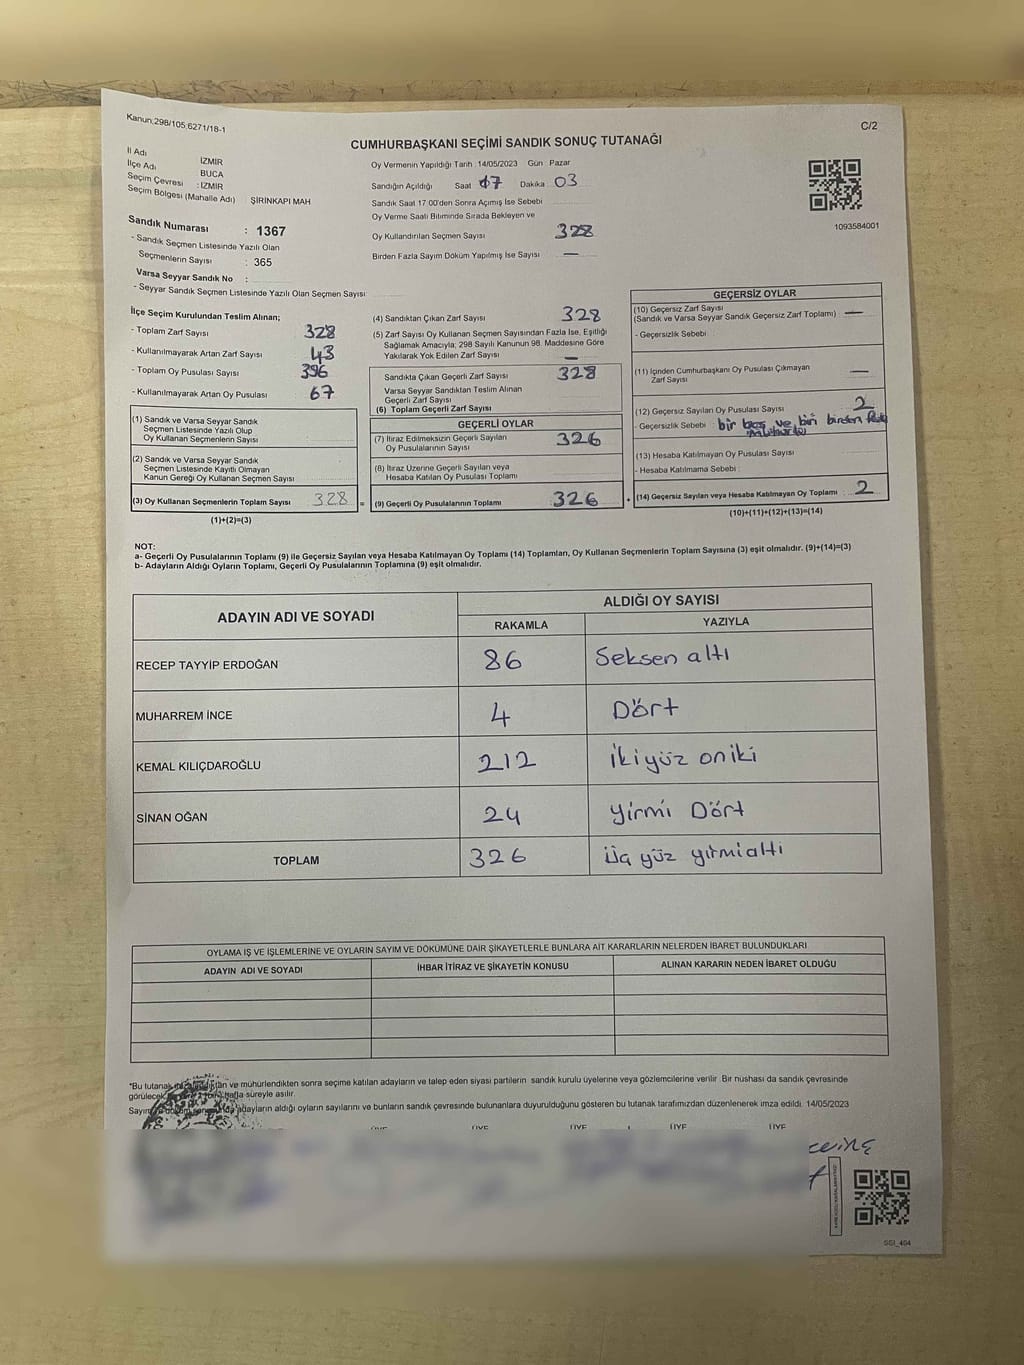 Kanun;298/105;6271/18-1
C/2
CUMHURBAŞKANI SEÇİMİ SANDIK SONUÇ TUTANAĞI
İl Adı İZMİR
İlçe Adı BUCA
Seçim Çevresi : İZMİR
Seçim Bölgesi (Mahalle Adı) ŞİRİNKAPI MAH
Sandık Numarası : 1367
- Sandık Seçmen Listesinde Yazılı Olan
Seçmenlerin Sayısı : 365
Varsa Seyyar Sandık No :
- Seyyar Sandık Seçmen Listesinde Yazılı Olan Seçmen Sayısı
Oy Vermenin Yapıldığı Tarih : 14/05/2023 Gün Pazar
Sandığın Açıldığı Saat 07 Dakika 03
Sandık Saat 17:00'den Sonra Açımış İse Sebebi
Oy Verme Saati Bitiminde Sırada Bekleyen ve
Oy Kullandırılan Seçmen Sayısı 328
Birden Fazla Sayım Döküm Yapılmış İse Sayısı —
1093584001
İlçe Seçim Kurulundan Teslim Alınan;
- Toplam Zarf Sayısı 328
- Kullanılmayarak Artan Zarf Sayısı 43
- Toplam Oy Pusulası Sayısı 396
- Kullanılmayarak Artan Oy Pusulası 67
(1) Sandık ve Varsa Seyyar Sandık
Seçmen Listesinde Yazılı Olup
Oy Kullanan Seçmenlerin Sayısı
(2) Sandık ve Varsa Seyyar Sandık
Seçmen Listesinde Kayıtlı Olmayan
Kanun Gereği Oy Kullanan Seçmen Sayısı
(3) Oy Kullanan Seçmenlerin Toplam Sayısı 328 =
(1)+(2)=(3)
(4) Sandıktan Çıkan Zarf Sayısı 328
(5) Zarf Sayısı Oy Kullanan Seçmen Sayısından Fazla İse, Eşitliği
Sağlamak Amacıyla; 298 Sayılı Kanunun 98. Maddesine Göre
Yakılarak Yok Edilen Zarf Sayısı —
Sandıkta Çıkan Geçerli Zarf Sayısı 328
Varsa Seyyar Sandıktan Teslim Alınan
Geçerli Zarf Sayısı
(6) Toplam Geçerli Zarf Sayısı
GEÇERLİ OYLAR
(7) İtiraz Edilmeksizin Geçerli Sayılan
Oy Pusulalarının Sayısı 326
(8) İtiraz Üzerine Geçerli Sayılan veya
Hesaba Katılan Oy Pusulası Toplamı
(9) Geçerli Oy Pusulalarının Toplamı 326 +
GEÇERSİZ OYLAR
(10) Geçersiz Zarf Sayısı
(Sandık ve Varsa Seyyar Sandık Geçersiz Zarf Toplamı) —
- Geçersizlik Sebebi
(11) İçinden Cumhurbaşkanı Oy Pusulası Çıkmayan
Zarf Sayısı —
(12) Geçersiz Sayılan Oy Pusulası Sayısı 2
- Geçersizlik Sebebi : bir boş ve biri birden
(13) Hesaba Katılmayan Oy Pusulası Sayısı
- Hesaba Katılmama Sebebi :
(14) Geçersiz Sayılan veya Hesaba Katılmayan Oy Toplamı 2
(10)+(11)+(12)+(13)=(14)
NOT:
a- Geçerli Oy Pusulalarının Toplamı (9) ile Geçersiz Sayılan veya Hesaba Katılmayan Oy Toplamı (14) Toplamları, Oy Kullanan Seçmenlerin Toplam Sayısına (3) eşit olmalıdır. (9)+(14)=(3)
b- Adayların Aldığı Oyların Toplamı, Geçerli Oy Pusulalarının Toplamına (9) eşit olmalıdır.
ADAYIN ADI VE SOYADI
ALDIĞI OY SAYISI
RAKAMLA YAZIYLA
RECEP TAYYİP ERDOĞAN 86 Seksen altı
MUHARREM İNCE 4 Dört
KEMAL KILIÇDAROĞLU 212 ikiyüz oniki
SİNAN OĞAN 24 Yirmi Dört
TOPLAM 326 Üç yüz yirmialtı
OYLAMA İŞ VE İŞLEMLERİNE VE OYLARIN SAYIM VE DÖKÜMÜNE DAİR ŞİKAYETLERLE BUNLARA AİT KARARLARIN NELERDEN İBARET BULUNDUKLARI
ADAYIN ADI VE SOYADI İHBAR İTİRAZ VE ŞİKAYETİN KONUSU ALINAN KARARIN NEDEN İBARET OLDUĞU
*Bu tutanak ve mühürlendikten sonra seçime katılan adayların ve talep eden siyasi partilerin sandık kurulu üyelerine veya gözlemcilerine verilir. Bir nüshası da sandık çevresinde
görülecek hafta süreyle asılır.
Sayım adayların aldığı oyların sayılarını ve bunların sandık çevresinde bulunanlara duyurulduğunu gösteren bu tutanak tarafımızdan düzenlenerek imza edildi. 14/05/2023
ÜYE ÜYE ÜYE ÜYE ÜYE
SSI_404